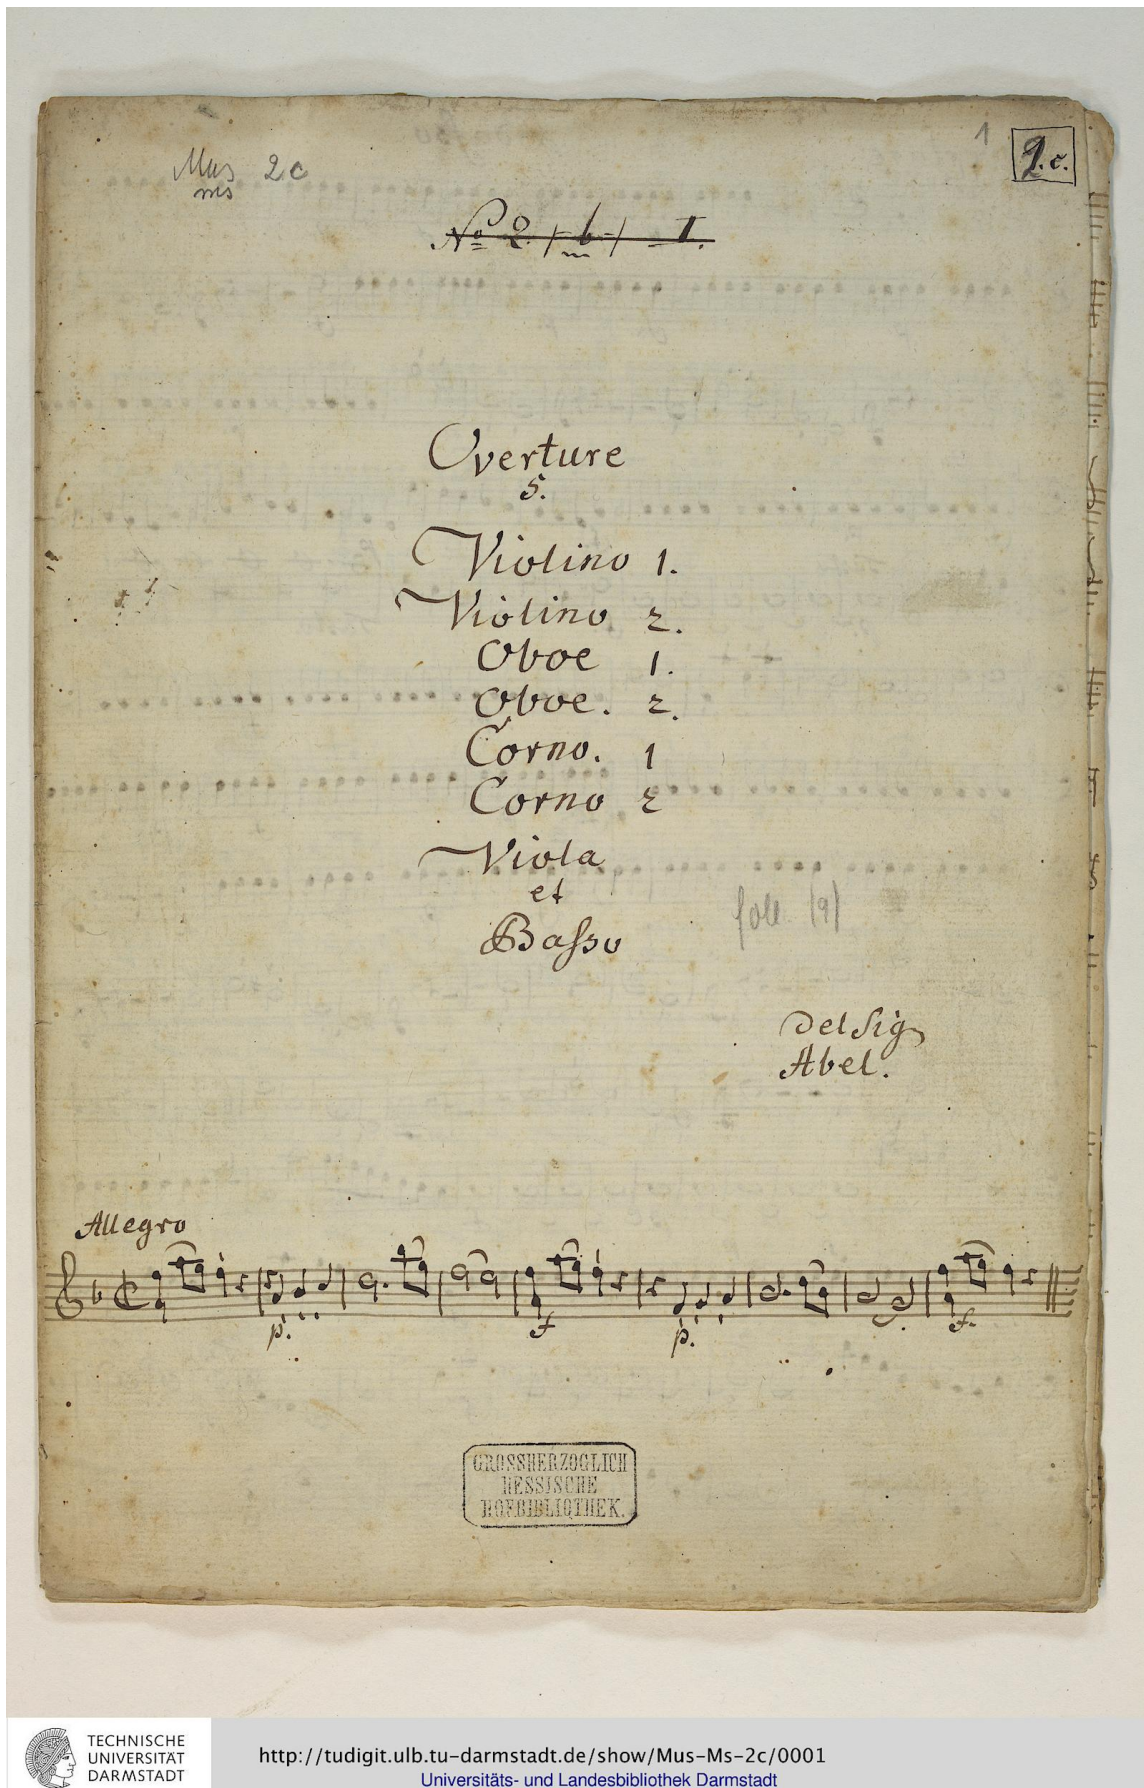 1
2.c.
Mus 2c
ms
No 2. / b / I.
Overture
5.
Violino 1.
Violino 2.
Oboe 1.
Oboe. 2.
Corno. 1
Corno 2
Viola
et
Baſso
(9)
Del Sig
Abel.
Allegro
p. f p. f.
GROSSHERZOGLICH
HESSISCHE
HOFBIBLIOTHEK.
TECHNISCHE
UNIVERSITÄT
DARMSTADT
http://tudigit.ulb.tu-darmstadt.de/show/Mus-Ms-2c/0001
Universitäts- und Landesbibliothek Darmstadt